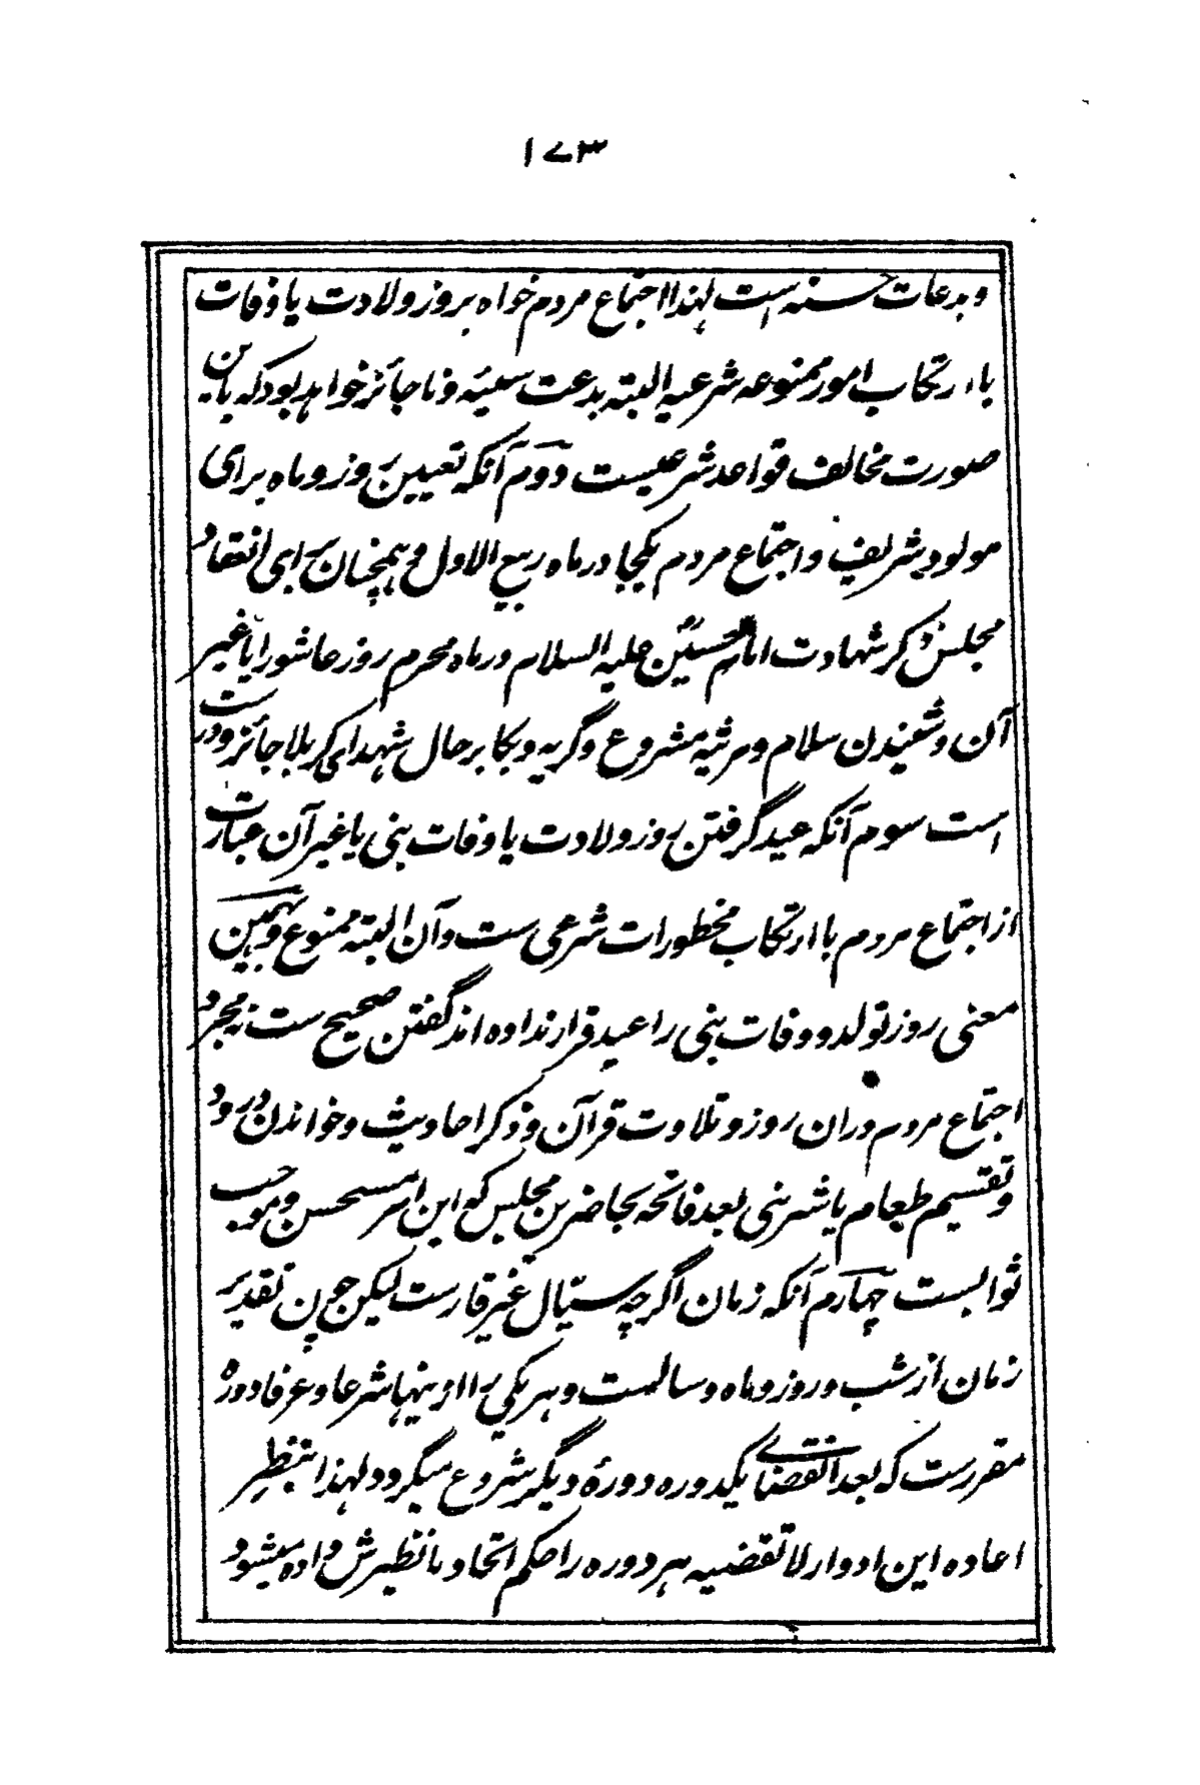 ۱۷۳
و بدعات حسنه است لهذا اجتماع مردم خواه بروز ولادت یا وفات
با ارتکاب امور ممنوعه شرعیه البته بدعت سیئه و ناجائز خواهد بود که باین
صورت مخالف قواعد شرعیست دوم آنکه تعیین روز و ماه برای
مولود شریف و اجتماع مردم یکجا در ماه ربیع الاول و همچنان برای انعقاد
مجلس ذکر شهادت امام حسین علیه السلام در ماه محرم روز عاشورا یا غیر
آن و شنیدن سلام و مرثیه مشروع و گریه و بکا بر حال شهدای کربلا جائز و درست
است سوم آنکه عید گرفتن روز ولادت یا وفات نبی یا غیر آن عبارت
از اجتماع مردم با ارتکاب محظورات شرعی ست و آن البته ممنوع و بهمین
معنی روز تولد و وفات نبی را عید قرار نداده اند گفتن صحیح ست نه مجرد
اجتماع مردم دران روز و تلاوت قرآن و ذکر احادیث و خواندن درود
و تقسیم طعام یا شرینی بعد فاتحه بحاضرین مجلس که این امر مستحسن و موجب
ثوابست چهارم آنکه زمان اگرچه سیّال غیر قارست لیکن چون تقدیر
زمان از شب و روز و ماه و سالست و هر یکی را ازینها شرعا و عرفا دوره
مقررست که بعد انقضای یکدوره دورهٔ دیگر شروع میگردد لهذا بنظرِ
اعاده این ادوار لا تقضیه هر دوره را حکم اتحاد با نظیرش داده میشود